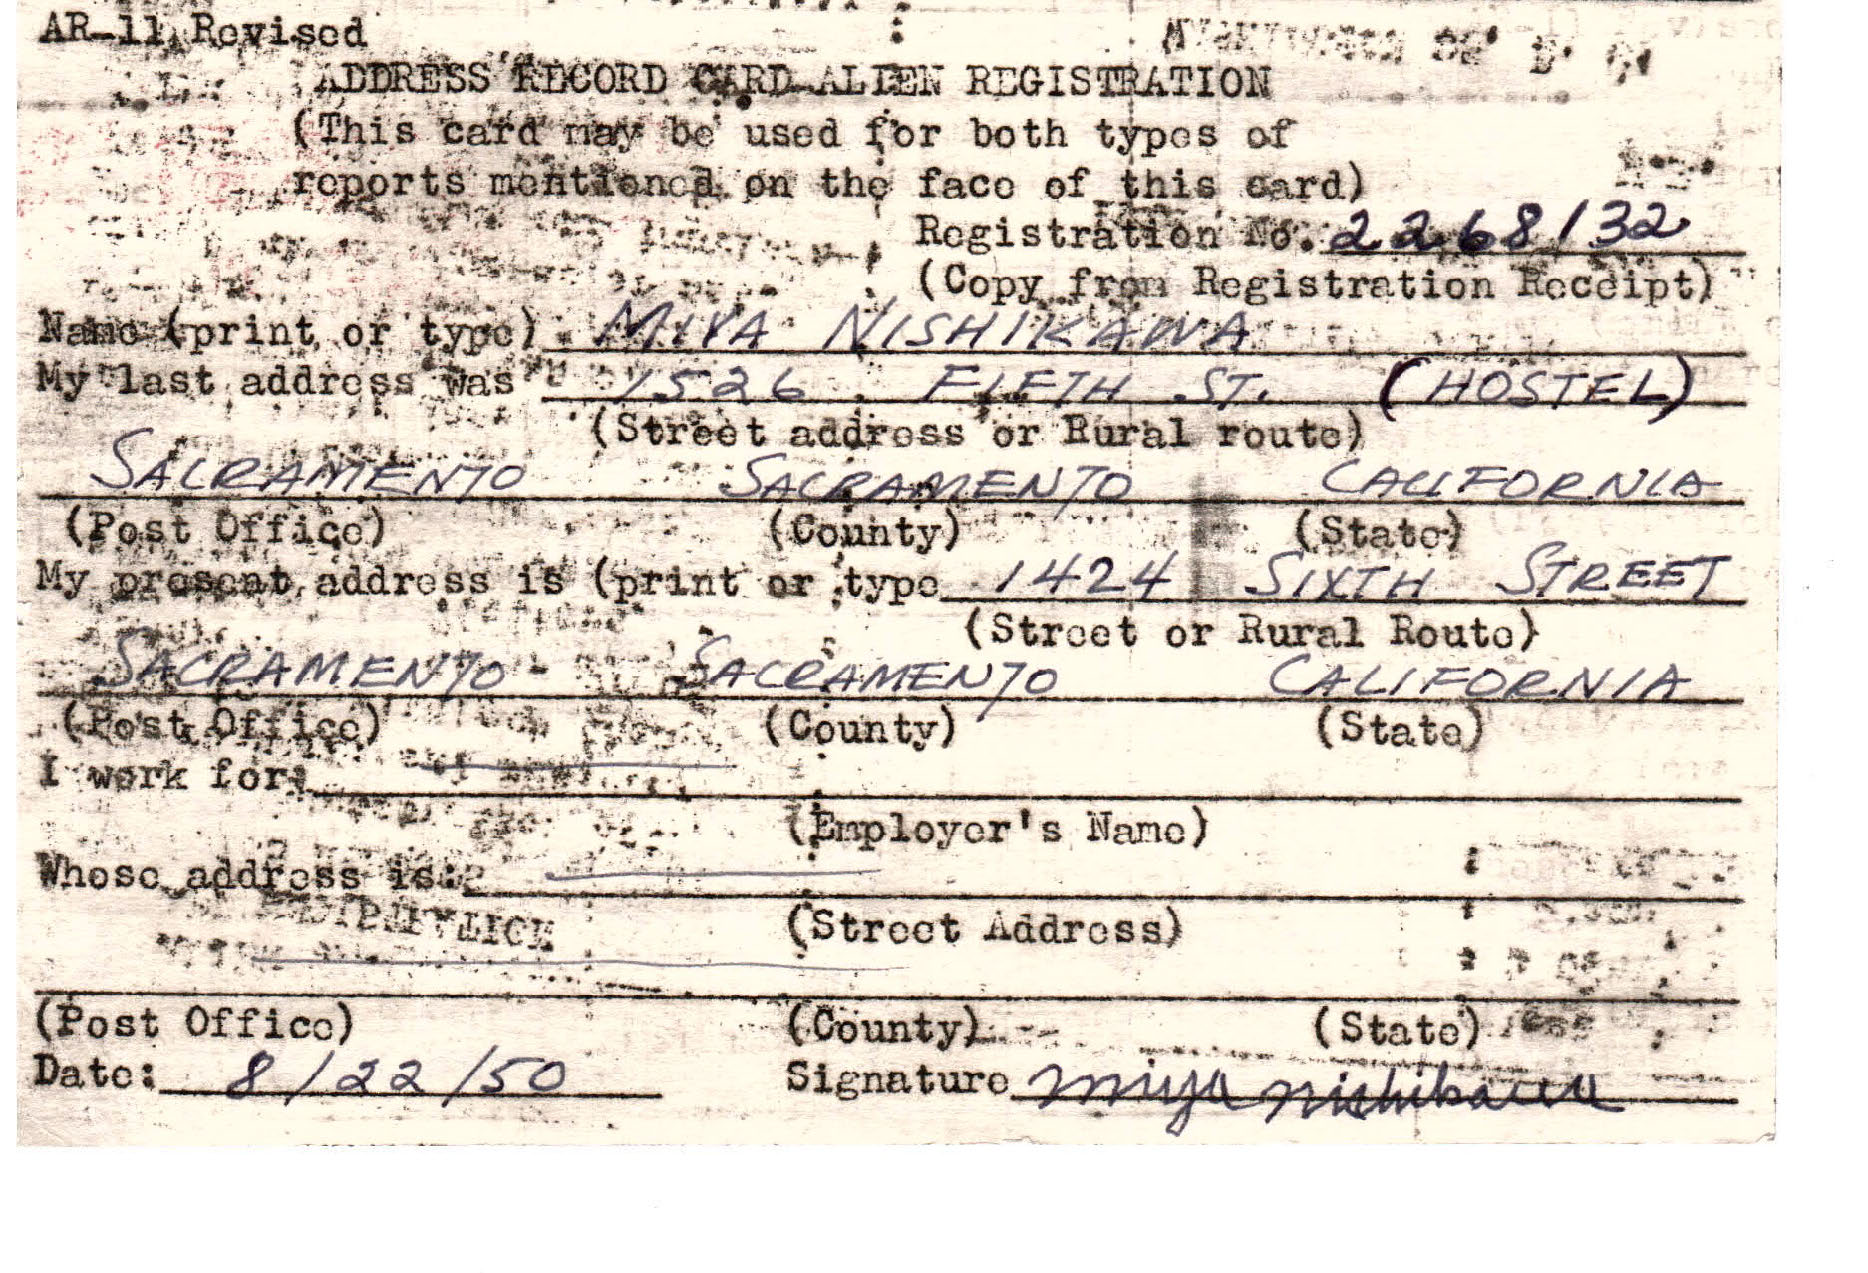 AR-11 Revised
ADDRESS RECORD CARD-ALIEN REGISTRATION
(This card may be used for both types of
reports mentioned on the face of this card)
Registration No. 2268132
(Copy from Registration Receipt)
Name (print or type) MIYA NISHIKAWA
My last address was 1526 FIFTH ST. (HOSTEL)
(Street address or Rural route)
SACRAMENTO SACRAMENTO CALIFORNIA
(Post Office) (County) (State)
My present address is (print or type 1424 SIXTH STREET
(Street or Rural Route)
SACRAMENTO SACRAMENTO CALIFORNIA
(Post Office) (County) (State)
I work for:
(Employer's Name)
Whose address is:
(Street Address)
(Post Office) (County) (State)
Date: 8/22/50 Signature Miya Nishikawa